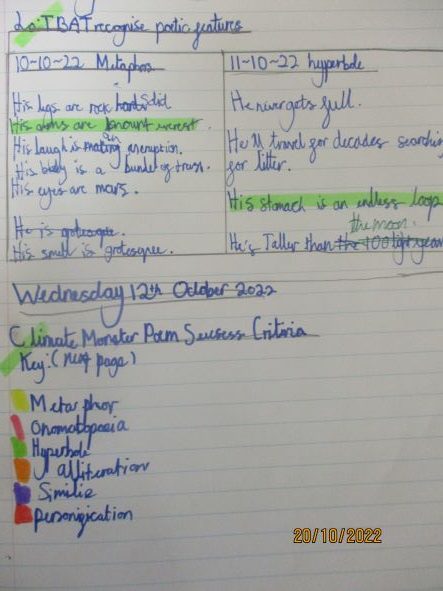 Lo: TBAT recognise poetic features
10-10-22 Metaphors
His legs are rock solid
His arms are mount everest.
His laugh is an eruption.
His belly is a bundle of trash.
His eyes are mars.
He is grotesque.
His smell is grotesque.
11-10-22 hyperbole
He never gets full.
He'll travel for decades searching
for litter.
His stomach is an endless loop
the moon.
He's Taller than the 100 light years
Wednesday 12th October 2022
Climate Monster Poem Sucsess Criteria
Key: (next page)
Metarphor
Onomatopoeia
Hyperbole
alliteration
Similie
personification
20/10/2022